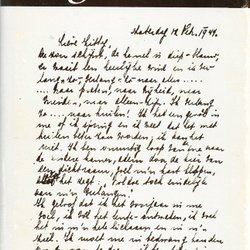 Zaterdag 12 Feb. 1944.
Lieve Kitty,
De zon schijnt, de hemel is diep-blauw,
er waait een heerlijke wind en ik ver-
lang zo, - verlang zo - naar alles ....
.... Naar praten, naar vrijheid, naar
vrienden, naar alleen-zijn. Ik verlang
zo .... naar huilen! Ik heb een gevoel in
me of ik spring en ik weet dat het met
huilen beter zou worden, ik kan het
niet. Ik ben onrustig loop van de ene naar
de andere kamer, adem door de kier van
een dicht raam, voel m'n hart kloppen,
alsof het zegt, Voldoe toch eindelijk
aan m'n verlangens
Ik geloof dat ik het voorjaar in me
voel, ik voel het lente-ontwaken, ik voel
het in m'n hele lichaam en in m'n
ziel. Ik moet me in bedwang houden